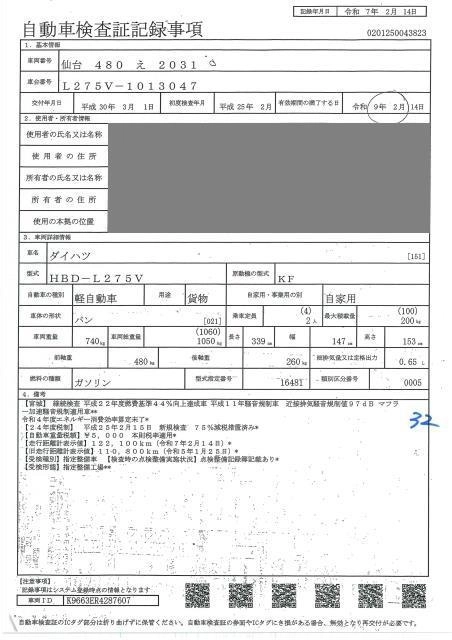 記録年月日 令和 7年 2月 14日
自動車検査証記録事項
0201250043823
1．基本情報
車両番号 仙台 480 え 2031
車台番号 L275V－1013047
交付年月日 平成30年 3月 1日 初度検査年月 平成25年 2月 有効期間の満了する日 令和 9年 2月 14日
2．使用者・所有者情報
使用者の氏名又は名称
使用者の住所
所有者の氏名又は名称
所有者の住所
使用の本拠の位置
3．車両詳細情報
車名 ダイハツ [151]
型式 HBD－L275V 原動機の型式 KF
自動車の種別 軽自動車 用途 貨物 自家用・事業用の別 自家用
車体の形状 バン [021] 乗車定員 (4) 2人 最大積載量 (100) 200kg
車両重量 740kg 車両総重量 (1060) 1050kg 長さ 339cm 幅 147cm 高さ 153cm
前軸重 480kg 後軸重 260kg 総排気量又は定格出力 0.65 L
燃料の種類 ガソリン 型式指定番号 16481 類別区分番号 0005
4．備考
【宮城】継続検査 平成22年度燃費基準44％向上達成車 平成11年騒音規制車 近接排気騒音規制値97dB マフラ
ー加速騒音規制適用車**
令和4年度エネルギー消費効率算定未了*
【24年度税制】 平成25年2月15日 新規検査 75％減税措置済み*
【自動車重量税額】￥5，000 本則税率適用*
【走行距離計表示値】122，100km（令和7年2月14日）*
【旧走行距離計表示値】110，800km（令和5年1月25日）*
【受検種別】指定整備車 【検査時の点検整備実施状況】点検整備記録簿記載あり*
【受検形態】指定整備工場**
32
【注意事項】
記録事項はシステム登録時点の情報となります
車両ID K9663ER4287607
自動車検査証のICタグ部分は折り曲げずに保管ください。自動車検査証の券面やICタグにき損がある場合、無効となり再交付が必要です。